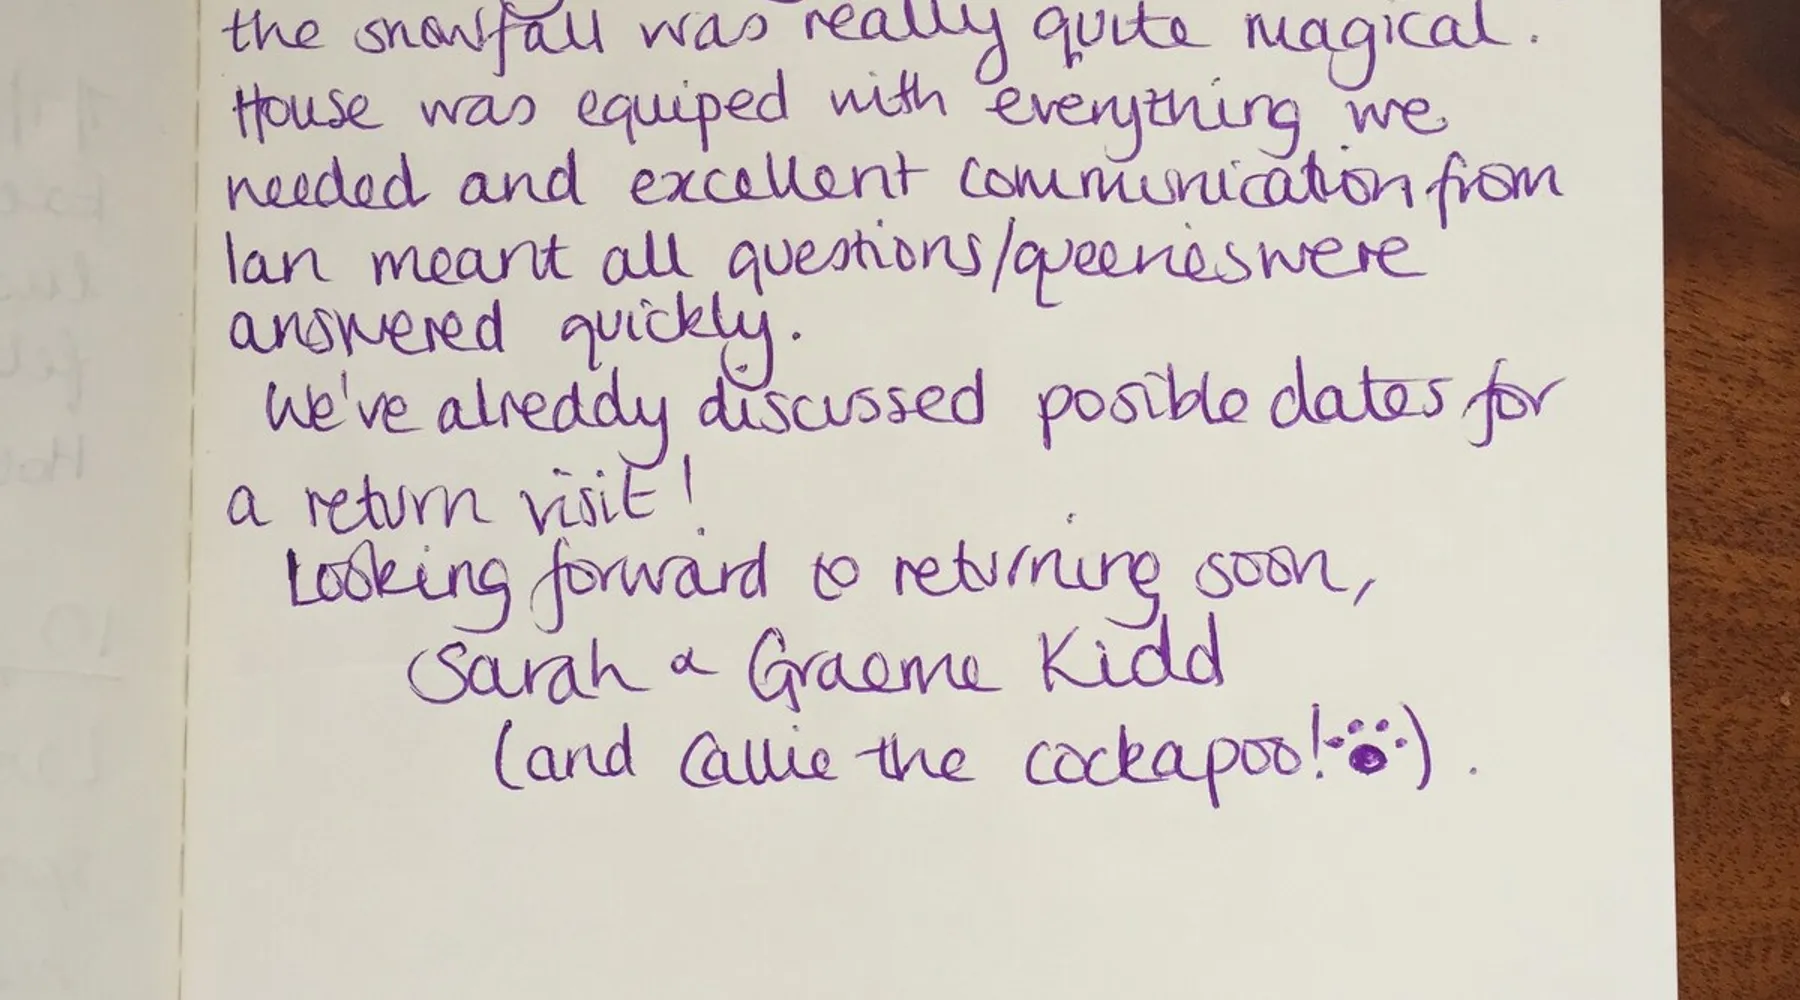 the snowfall was really quite magical.
House was equiped with everything we
needed and excellent communication from
Ian meant all questions/queeries were
answered quickly.
We've alreddy discussed posible dates for
a return visit!
Looking forward to returning soon,
Sarah & Graeme Kidd
(and Callie the cockapoo!).